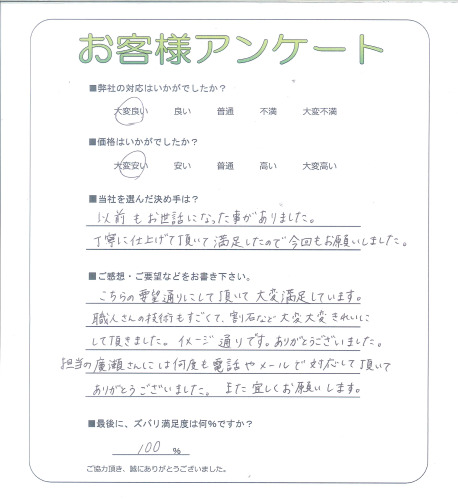 お客様アンケート
■弊社の対応はいかがでしたか？
大変良い 良い 普通 不満 大変不満
■価格はいかがでしたか？
大変安い 安い 普通 高い 大変高い
■当社を選んだ決め手は？
以前もお世話になった事がありました。
丁寧に仕上げて頂いて満足したので今回もお願いしました。
■ご感想・ご要望などをお書き下さい。
こちらの要望通りにして頂いて大変満足しています。
職人さんの技術もすごくて、割石など大変大変きれいに
して頂きました。イメージ通りです。ありがとうございました。
担当の廣瀬さんには何度も電話やメールで対応して頂いて
ありがとうございました。また宜しくお願いします。
■最後に、ズバリ満足度は何％ですか？
100 ％
ご協力頂き、誠にありがとうございました。